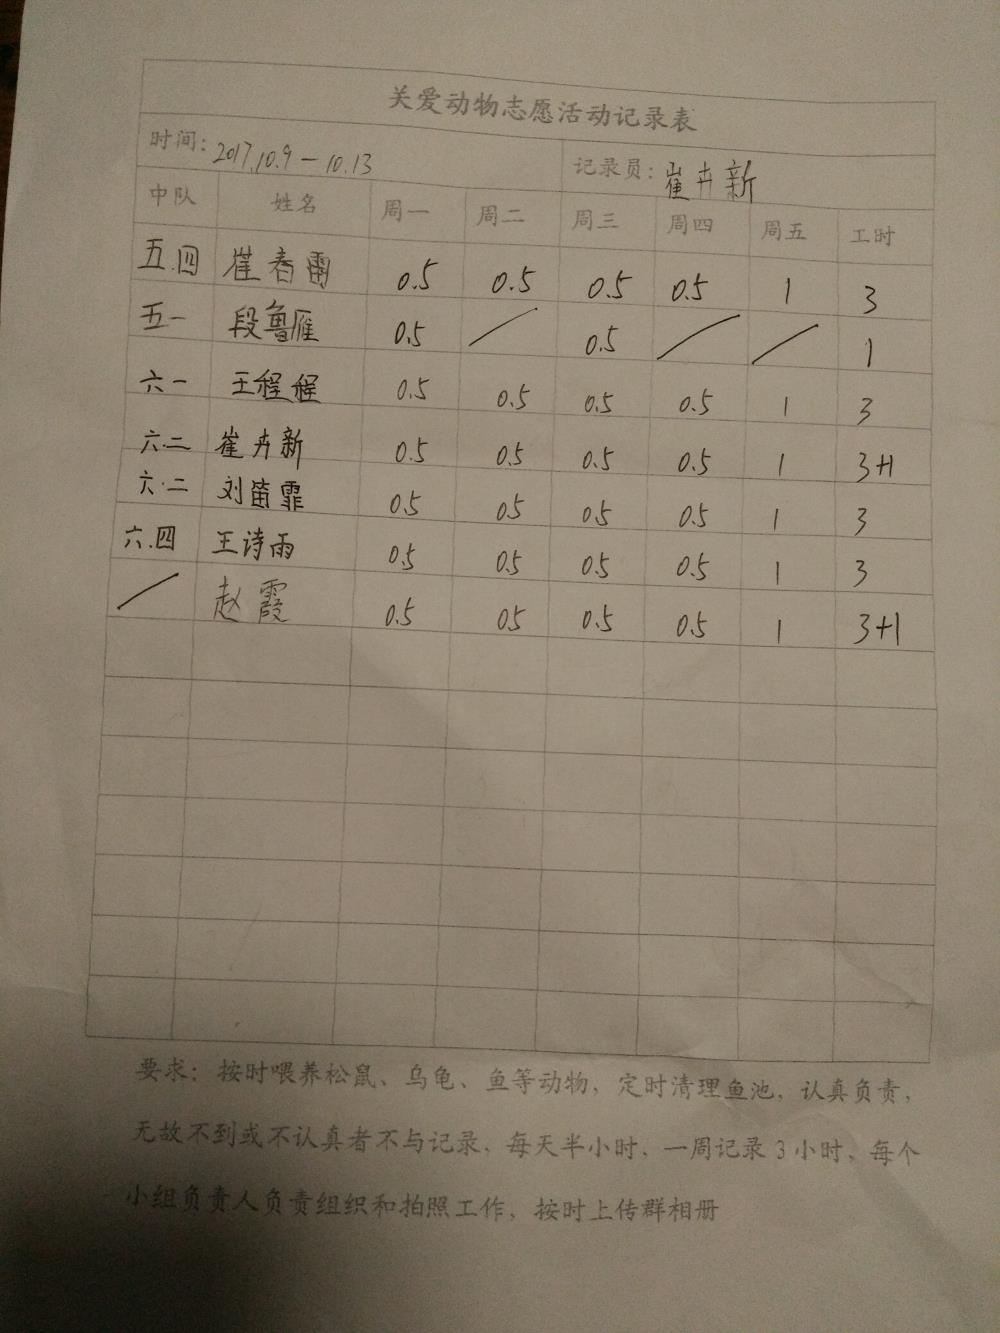 关爱动物志愿活动记录表
时间：2017.10.9－10.13 记录员：崔卉新
中队 姓名 周一 周二 周三 周四 周五 工时
五.四 崔春雷 0.5 0.5 0.5 0.5 1 3
五一 段鲁雁 0.5 / 0.5 / / 1
六一 王程程 0.5 0.5 0.5 0.5 1 3
六.二 崔卉新 0.5 0.5 0.5 0.5 1 3+1
六.二 刘笛霏 0.5 0.5 0.5 0.5 1 3
六.四 王诗雨 0.5 0.5 0.5 0.5 1 3
/ 赵霞 0.5 0.5 0.5 0.5 1 3+1
要求：按时喂养松鼠、乌龟、鱼等动物，定时清理鱼池，认真负责，
无故不到或不认真者不与记录，每天半小时，一周记录3小时，每个
小组负责人负责组织和拍照工作，按时上传群相册